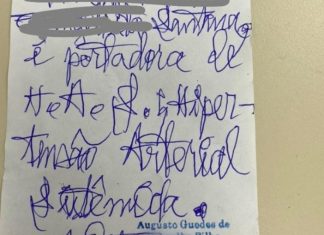 Santana
é portadora de
HeAeS.: Hiper-
tensão Arterial
Sistêmica.
Augusto Guedes de